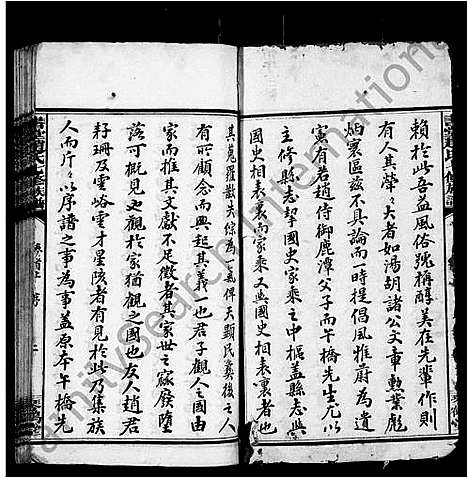 賴於此吾益風俗號稱醇美在先輩作則
有人其犖々大者如湯胡諸公文章勲業彪
炳寰區茲不具論而一時提倡風雅蔚為遺
實有若趙侍御鹿潭父子而午橋先生尤以
主修縣志掌國史家乘之中樞蓋縣志與
國史相表裏而家乘又與國史相表裏者也
其蒐羅散失綜為一氣俾夫顯民彝後之人
有所顧念而興起其義一也君子觀人之國由
家而推其文獻不足徵者其家世之寥廢墮
落可概見也觀於家猶觀之國也友人趙君
籽珊及雲峪雲才星陔者有見於此乃集族
人而斤々以序譜之事為事蓋原本午橋先
FamilySearch International